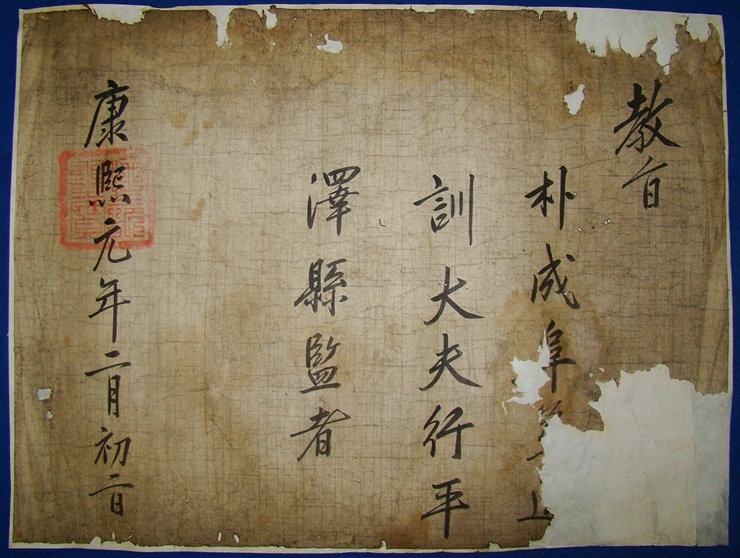 教旨
朴成阜
訓大夫行平
澤縣監者
康熙元年二月初二日